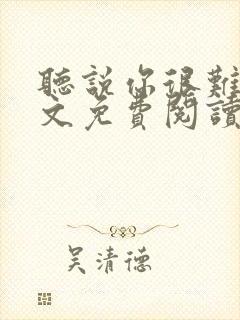 聽說你很難
文免費閱讀
吳清德